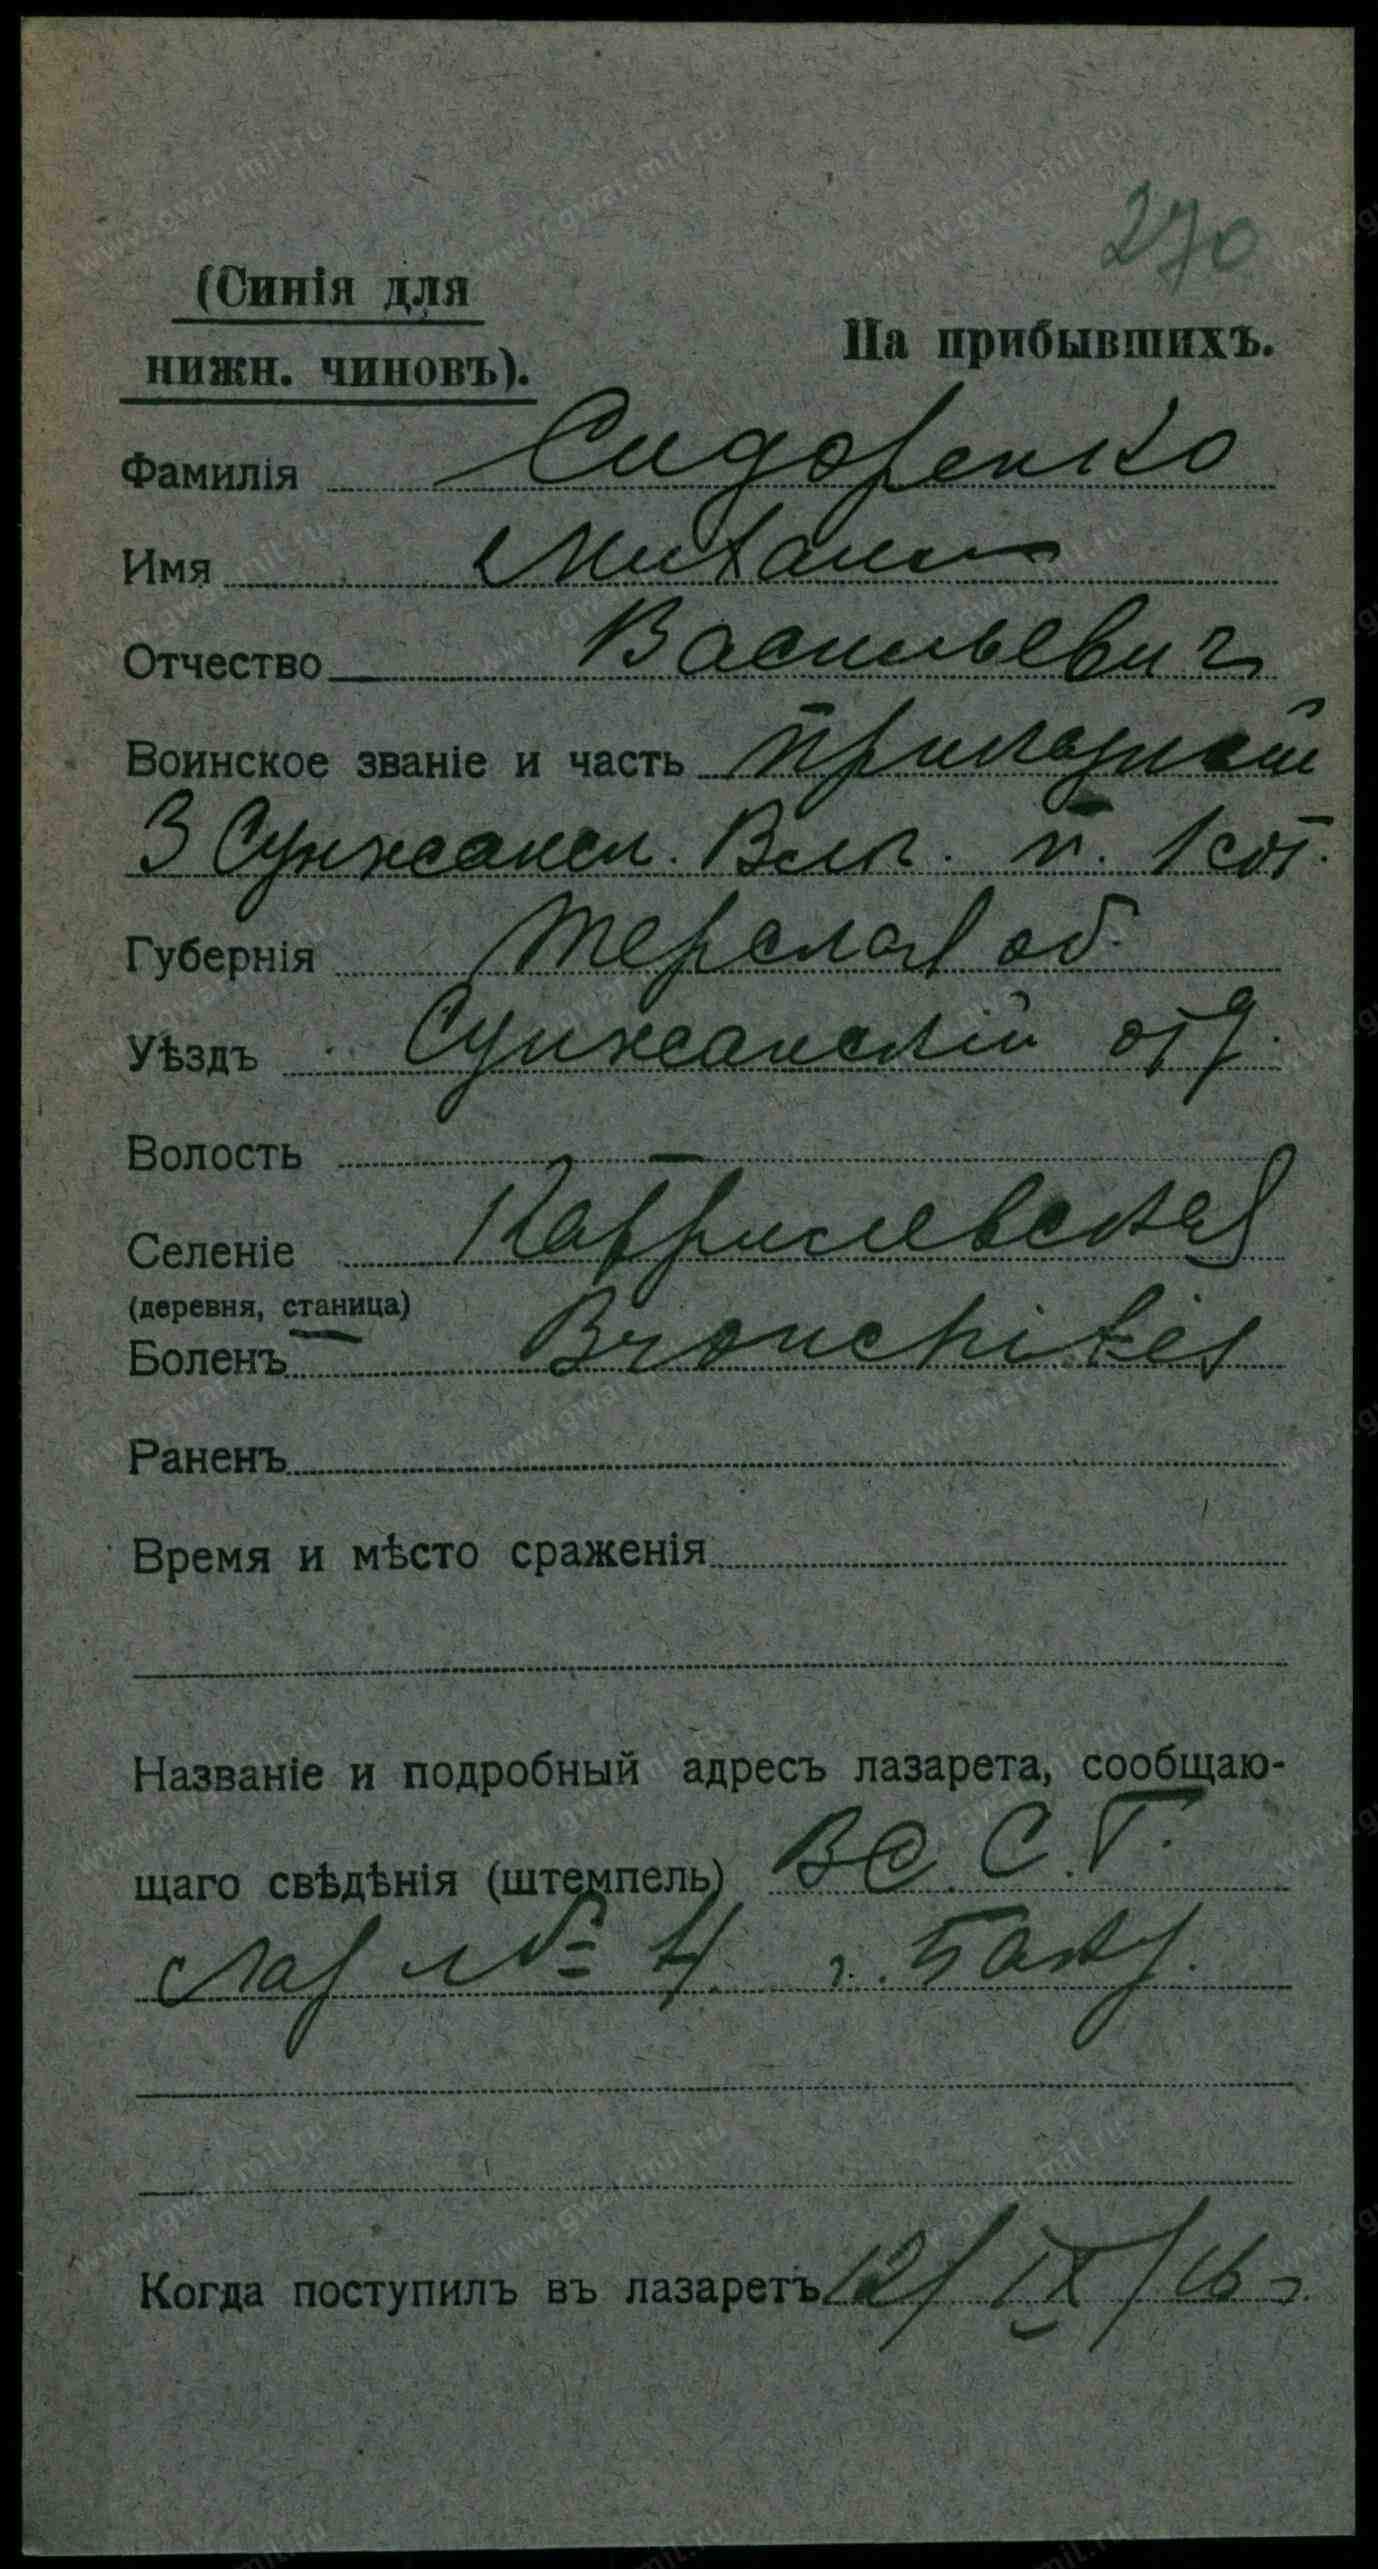 270
(Синія для
нижн. чиновъ).
На прибывшихъ.
Фамилія Сидоренко
Имя Михаил
Отчество Васильевич
Воинское званіе и часть приказный
3 Сунженск. Влк. п. 1 сот.
Губернія Терская об.
Уѣздъ Сунженскій отд.
Волость —
Селеніе Кабриевская
(деревня, станица)
Боленъ Bronchites
Раненъ
Время и мѣсто сраженія
Названіе и подробный адресъ лазарета, сообщаю-
щаго свѣдѣнія (штемпель) В С. Г.
Лаз №4 г. Баку.
Когда поступилъ въ лазаретъ 12/IX/16 г.
www.gwar.mil.ru